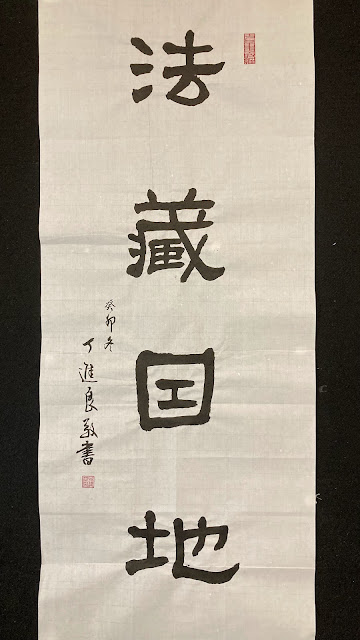 法藏囙地
癸卯冬
丁進良敬書